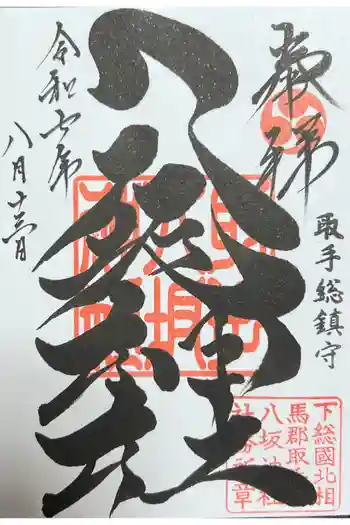 奉拝
取手総鎮守
八坂神社
令和七年
八月
下総國北相
馬郡取
八坂神社
社務所章